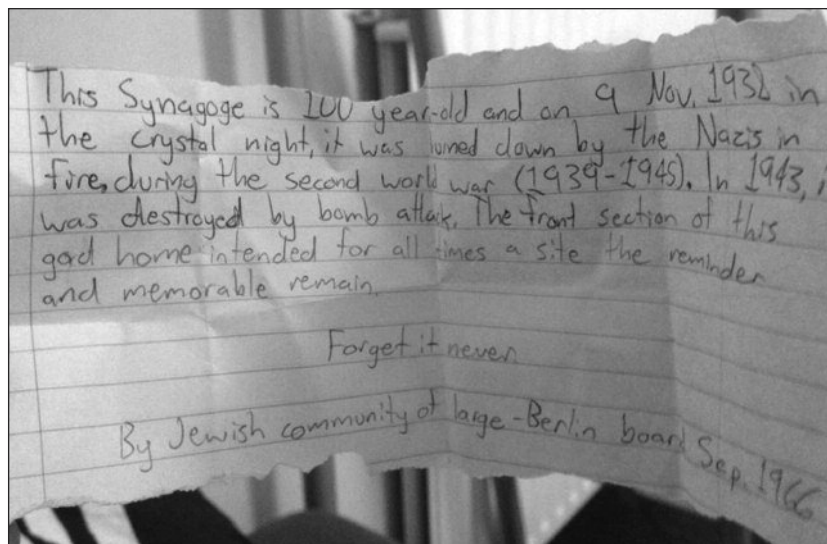 This Synagoge is 100 year-old and on 9 Nov. 1938 in
the crystal night, it was burned down by the Nazis in
fire, during the second world war (1939-1945). In 1943, i
was destroyed by bomb attack. The front section of this
god home intended for all times a site the reminder
and memorable remain.
Forget it never
By Jewish community of large-Berlin board Sep. 1966